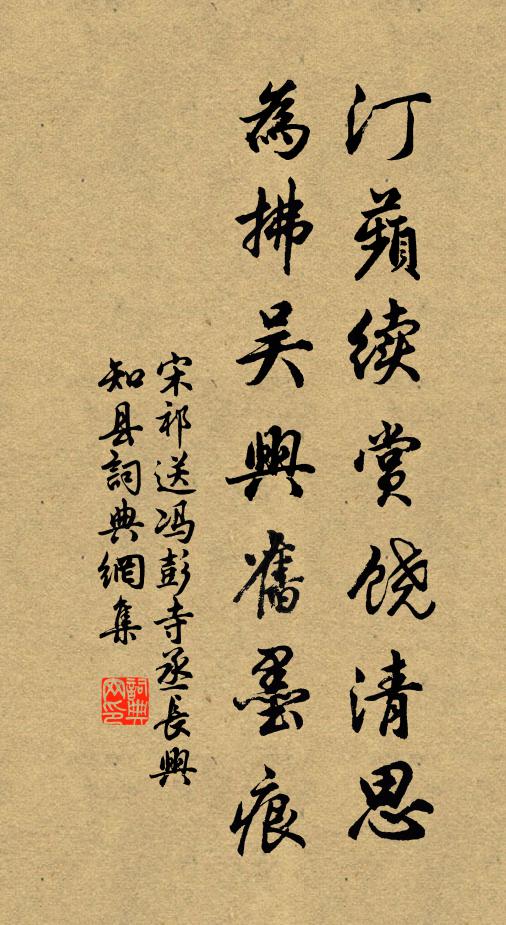 汀蘋續赏饒清思
為拂吴興舊墨痕
宋祁送馮彭寺丞長興
知县詞典網集
詞典網印